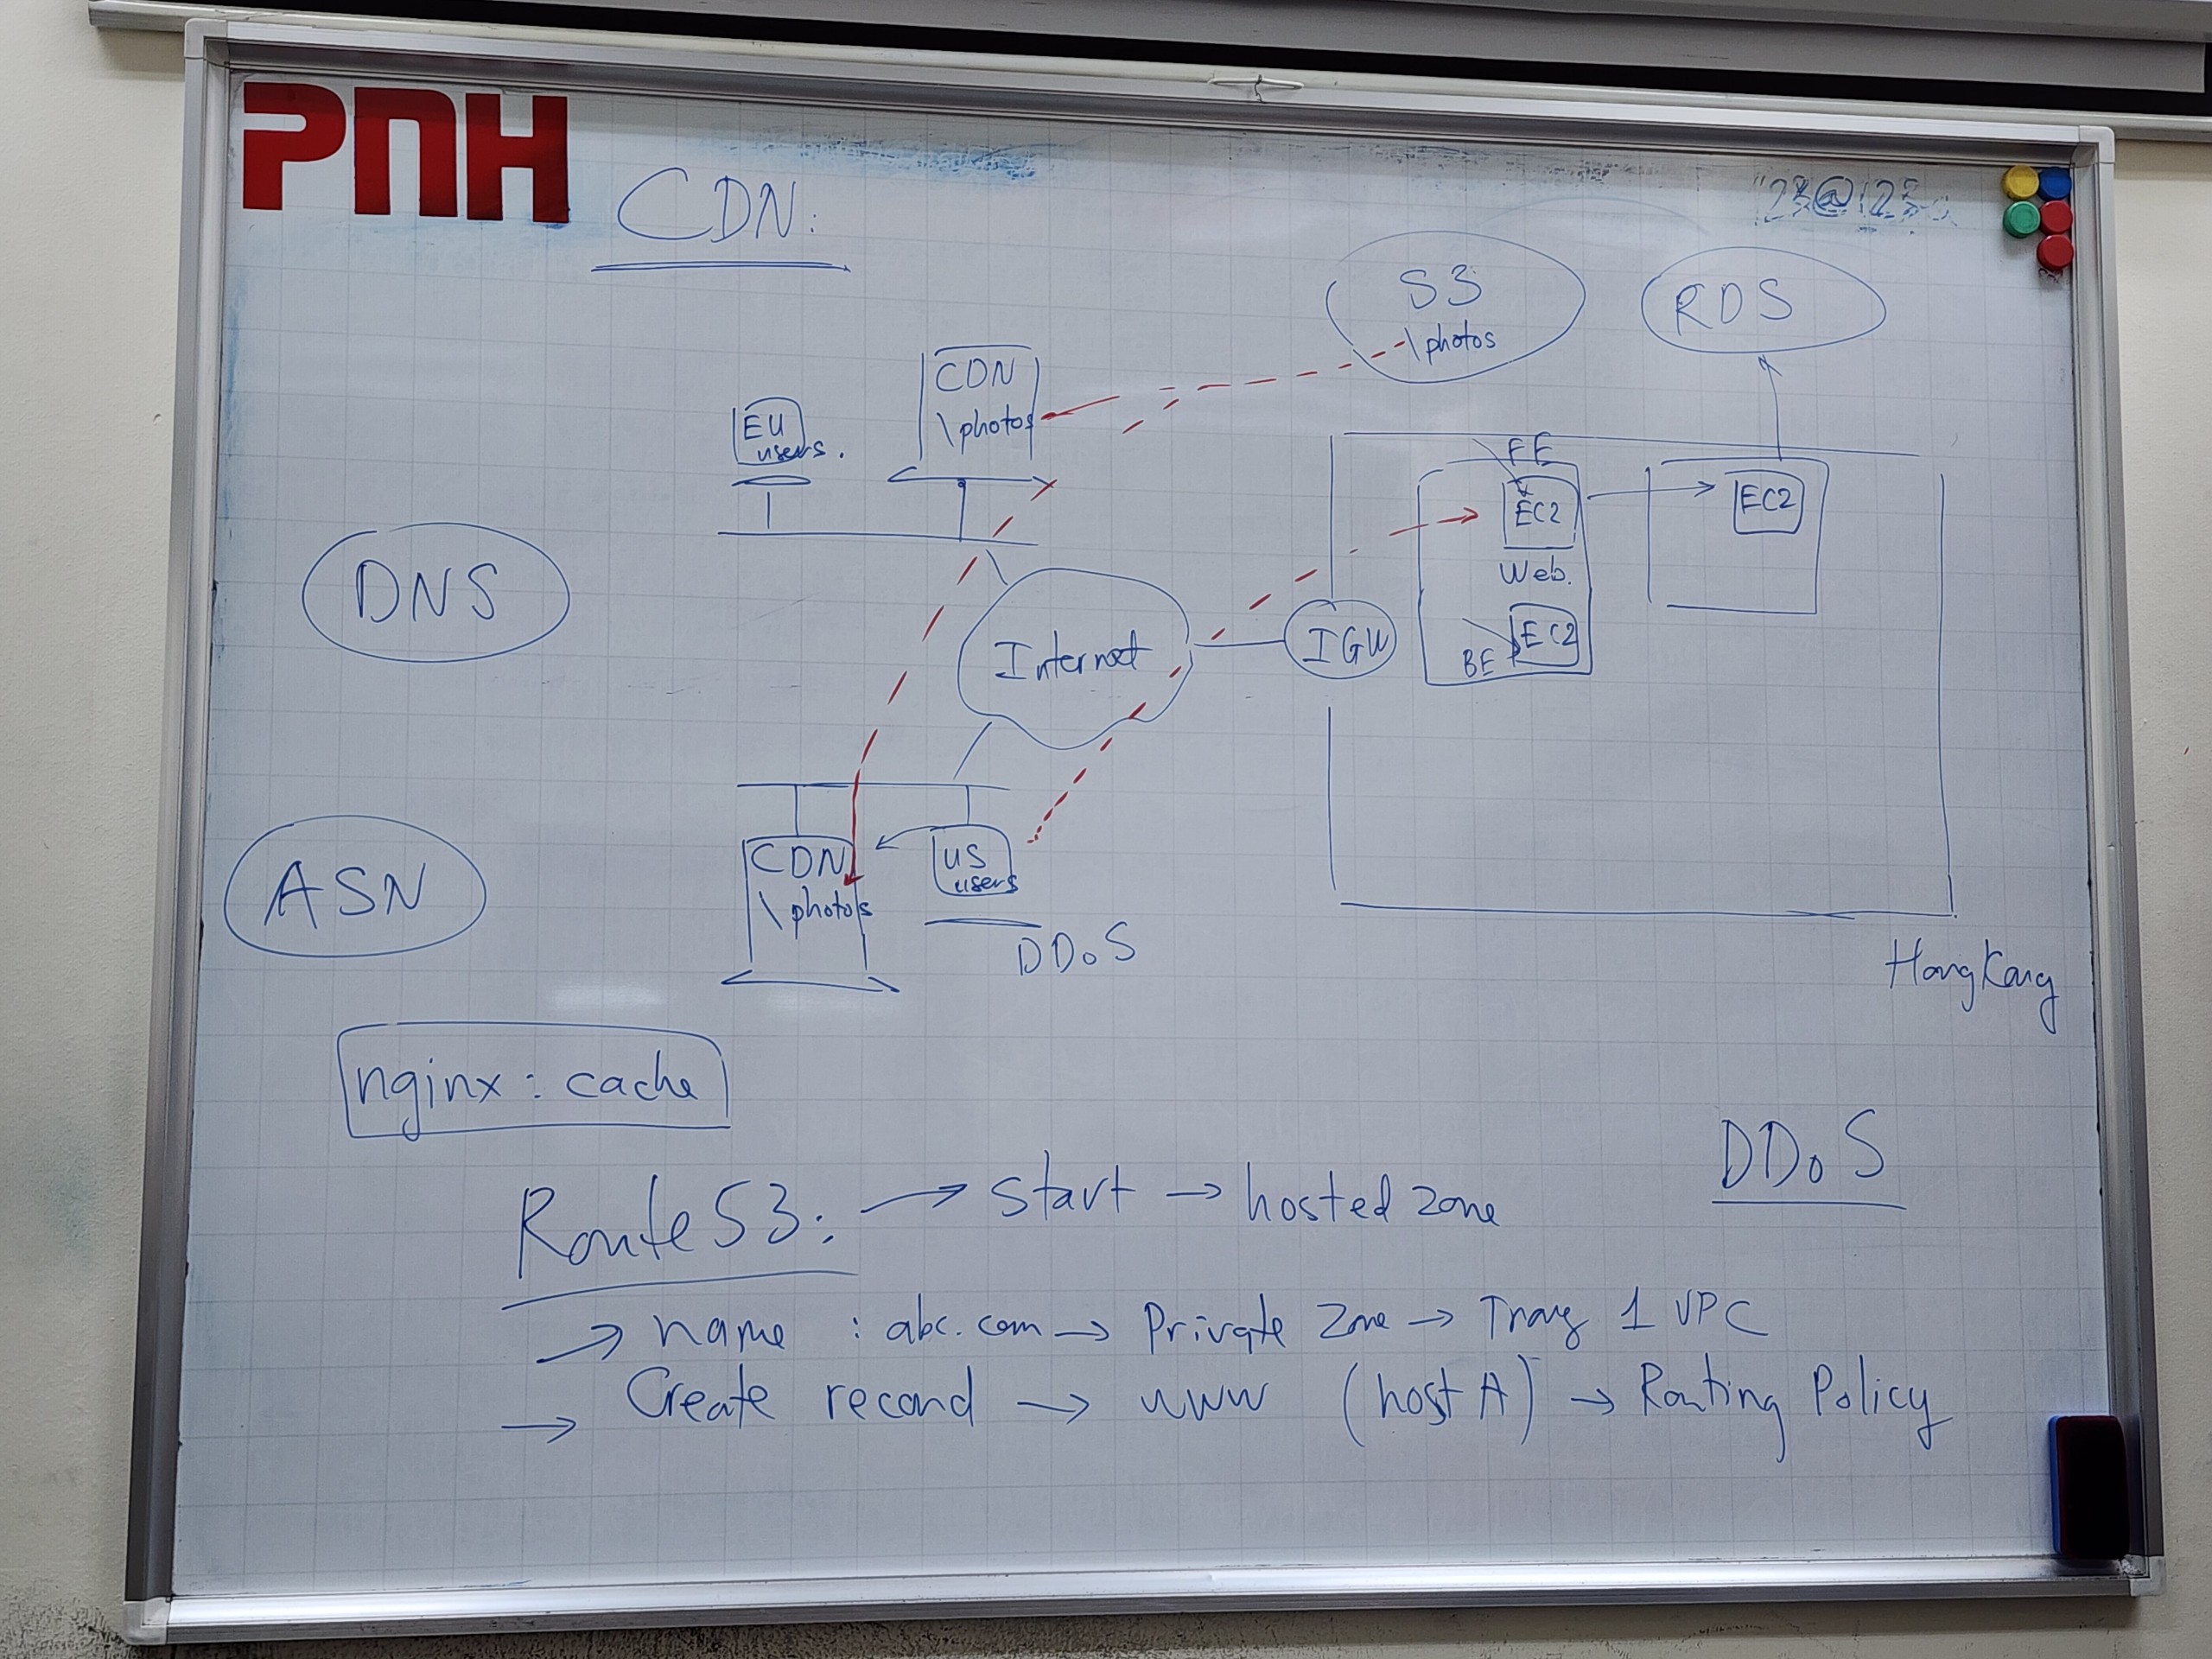 PNH
CDN:
S3
\photos
RDS
CDN
\photos
EU
users.
FE
EC2
Web.
EC2
BE
EC2
DNS
Internet
IGW
CDN
\photos
US
users
DDoS
ASN
HongKong
nginx: cache
DDoS
Route 53: → Start → hosted zone
→ name : abc.com → Private Zone → 1 VPC
→ Create record → www (host A) → Routing Policy